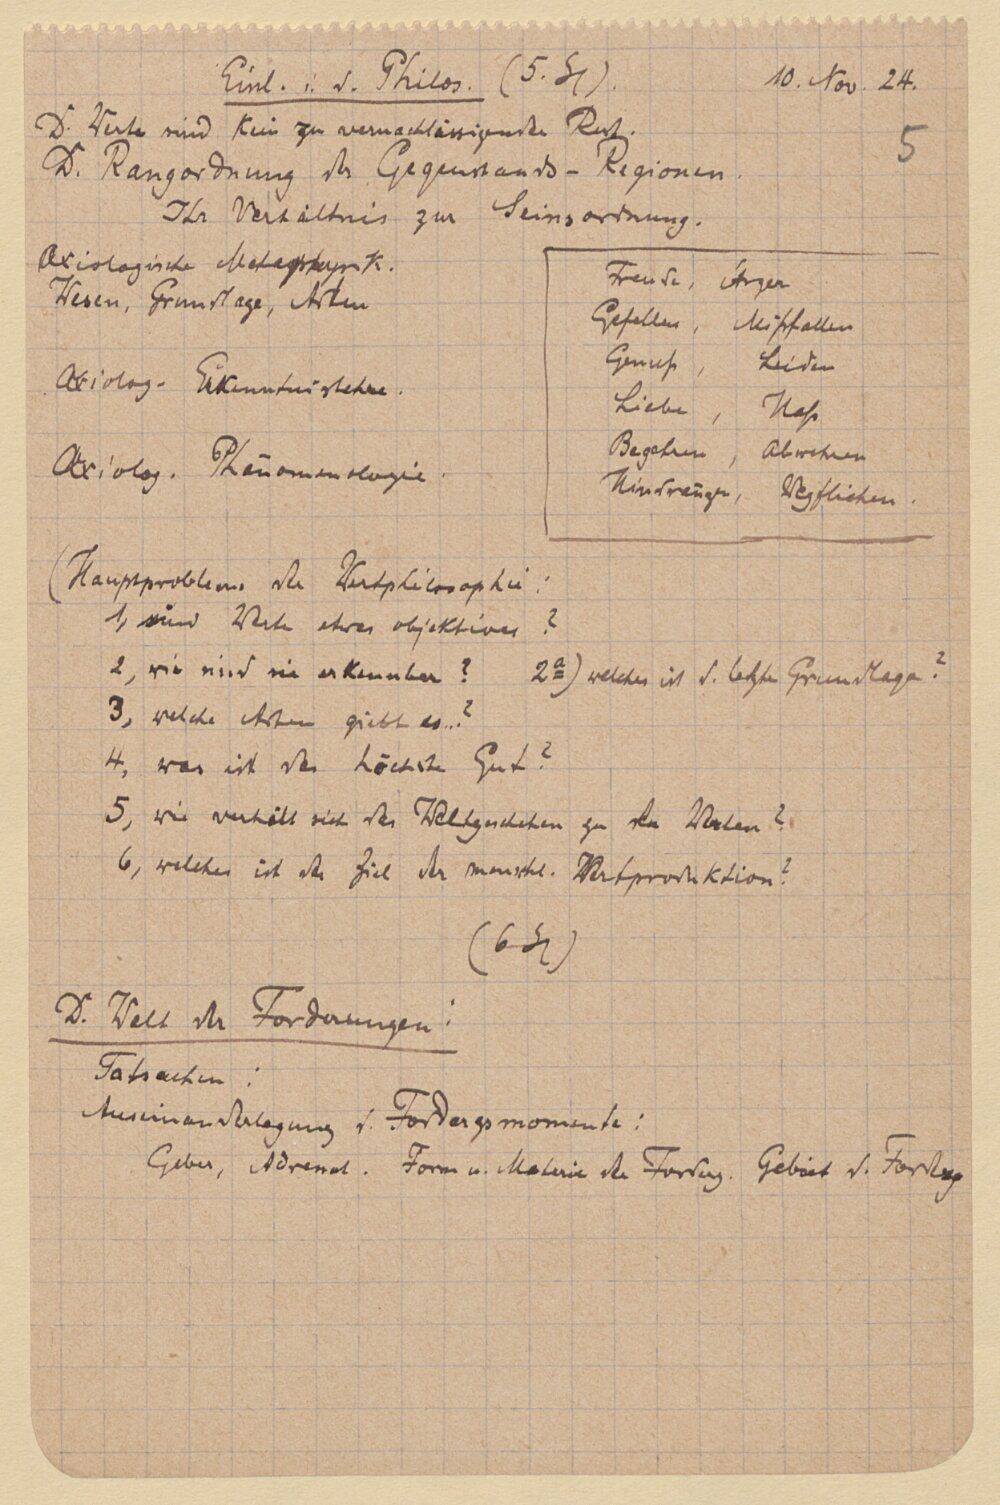 Einl. i. d. Philos. (5. St). 10. Nov. 24.
5
D. Werte sind kein zu vernachlässigender Rest.
D. Rangordnung der Gegenstands-Regionen.
Ihr Verhältnis zur Seinsordnung.
Axiologische Metaphysik.
Wesen, Grundlage, Arten
Axiolog. Erkenntnislehre.
Axiolog. Phänomenologie.
Freude, Ärger
Gefallen, Mißfallen
Genuß, Leiden
Liebe, Haß
Begehren, Abwehren
Hindrängen, Wegfliehen.
(Hauptprobleme der Wertphilosophie:
1, sind Werte etwas objektives?
2, wie sind sie erkennbar? 2a) welches ist d. letzte Grundlage?
3, welche Arten giebt es..?
4, was ist das höchste Gut?
5, wie verhält sich das Weltgeschehen zu den Werten?
6, welches ist das Ziel der menschl. Wertproduktion?
(6 St)
D. Welt der Forderungen:
Tatsachen:
Auseinanderlegung d. Fordergsmomente:
Geber, Adressat. Form u. Materie der Forderg. Gebiet d. Forderg